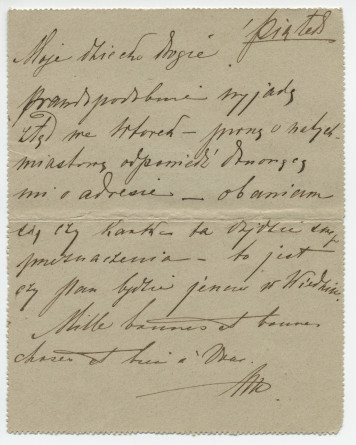 Piątek
Moje dziecko drogie
Prawdopodobnie wyjadę
ztąd we Wtorek – proszę o natych-
miastową odpowiedź
mi o adresie – obawiam
się, czy kartka ta dojdzie swego
przeznaczenia – to jest
czy Pan będzie jeszcze w Wiedniu.
Mille bonnes et bonnes
choses et